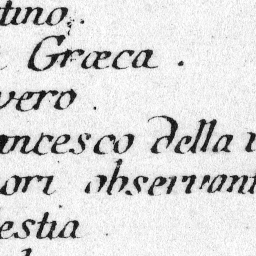 tino.
Græca .
vero .
ancesco della
ori observant
estia